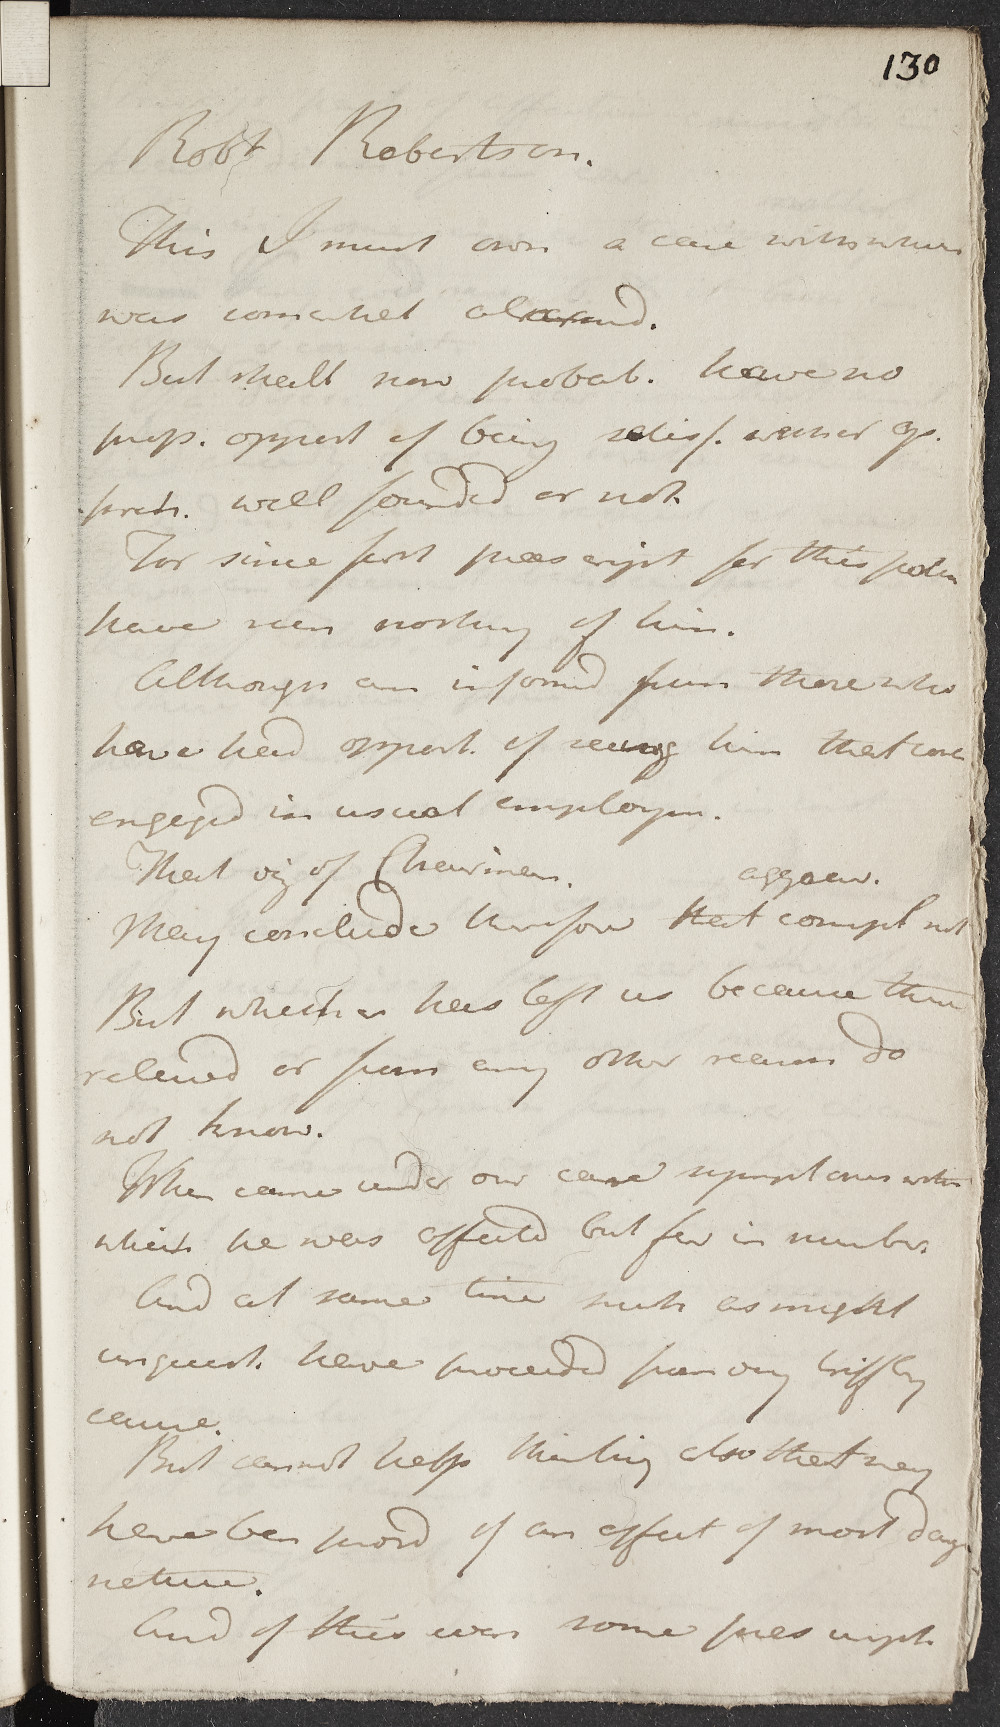 130
Robt Robertson.
This I must own a case with which
was somewhat alarmed.
But shall now probab. have no
prop. opport of being satisf. whether
well founded or not
For since first prescript for this patien
have seen nothing of him.
Although am informd from those who
have had opport. of seeing him that
engaged in usual employm.
That viz of Chairmen.
aggrav.
May conclude therefore that compl not
But whether has left us because then
relieved or from any other reason do
not know.
When came under our care symptoms with
which he was affected but few in number
And at same time such as might
unquest. have proceeded from very triffling
cause.
But cannot help thinking also that may
have been of an affect of most dang
nature.
And of this even some presumpt.